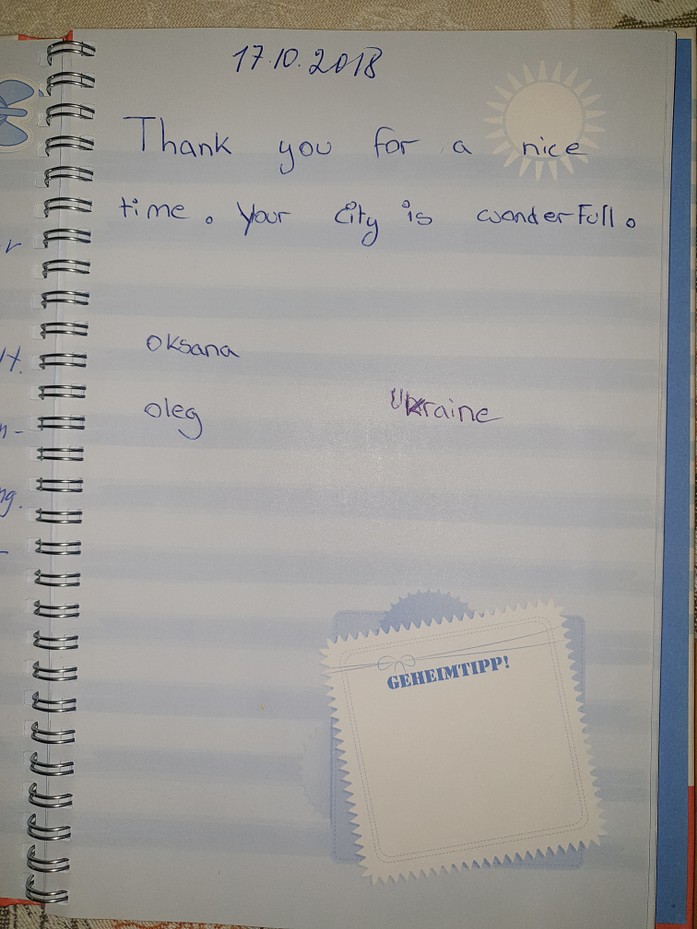 17.10.2018
Thank you for a nice
time. Your city is wonderfull.
Oksana
Oleg Ukraine
GEHEIMTIPP!